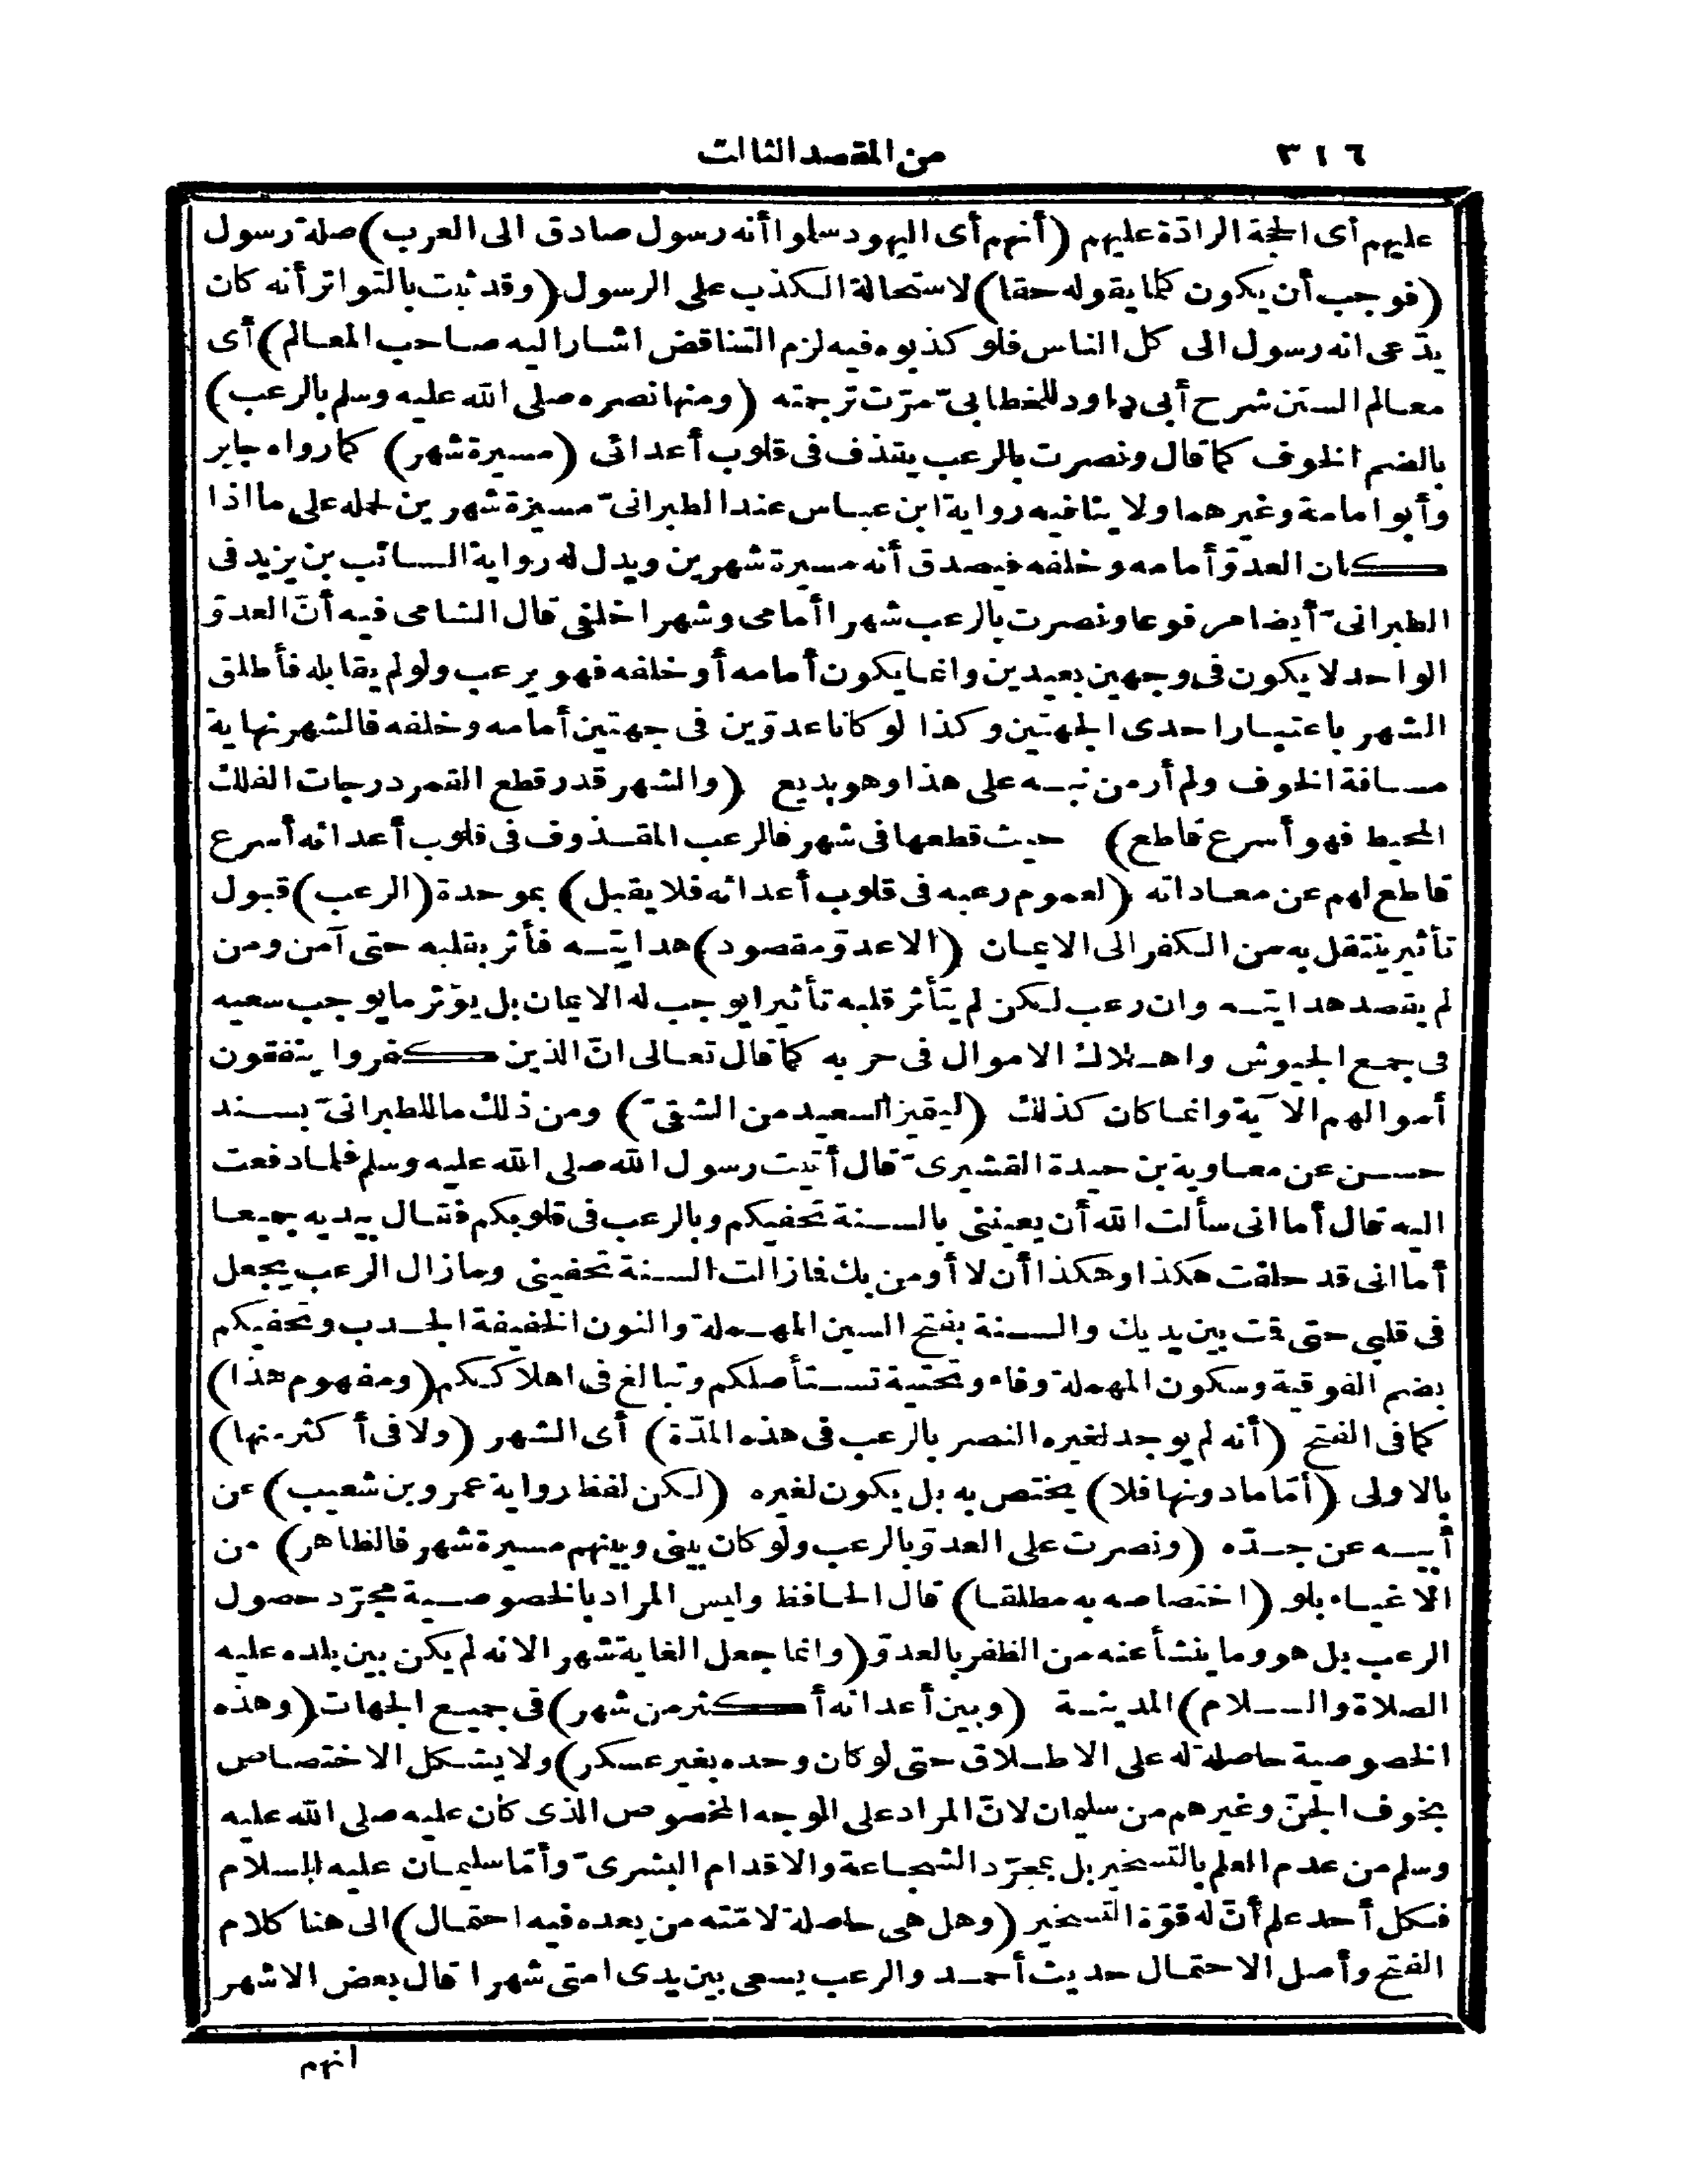 ٣١٦
من المقصد الثالث
عليهم أى الحجة الرادّة عليهم (أنهم أى اليهود سلموا أنه رسول صادق الى العرب) صلة رسول
(فوجب أن يكون كلما يقوله حقا) لاستحالة الكذب على الرسول (وقد ثبت بالتواتر أنه كان
يدّعى انه رسول الى كل الناس فلو كذبوه فيه لزم التناقض اشار اليه صاحب المعالم) أى
معالم السنن شرح أبى داود للخطابىّ مرّت ترجمته (ومنها نصره صلى الله عليه وسلم بالرعب)
بالضم الخوف كما قال ونصرت بالرعب يقذف فى قلوب أعدائى (مسيرة شهر) كما رواه جابر
وأبو امامة وغيرهما ولا ينافيه رواية ابن عباس عند الطبرانىّ مسيرة شهرين لحمله على ما اذا
كان العدوّ أمامه وخلفه فيصدق أنه مسيرة شهرين ويدل له رواية السائب بن يزيد فى
الطبرانىّ أيضا مرفوعا ونصرت بالرعب شهرا أمامى وشهرا خلفى قال الشامى فيه أنّ العدوّ
الواحد لا يكون فى وجهين بعيدين وانما يكون أمامه أو خلفه فهو يرعب ولو لم يقابله فأطلق
الشهر باعتبار احدى الجهتين وكذا لو كانا عدوّين فى جهتين أمامه وخلفه فالشهر نهاية
مسافة الخوف ولم أر من نبه على هذا وهو بديع (والشهر قدر قطع القمر درجات الفلك
المحيط فهو أسرع قاطع) حيث قطعها فى شهر فالرعب المقذوف فى قلوب أعدائه أسرع
قاطع لهم عن معاداته (لعموم رعبه فى قلوب أعدائه فلا يقبل) بموحدة (الرعب) قبول
تأثير ينتقل به من الكفر الى الايمان (الا عدوّ مقصود) هدايته فأثر بقلبه حتى آمن ومن
لم يقصد هدايته وان رعب لكن لم يتأثر قلبه تأثيرا يوجب له الايمان بل يؤثر ما يوجب سعيه
فى جمع الجيوش واهلاك الاموال فى حربه كما قال تعالى انّ الذين كفروا ينفقون
أموالهم الآية وانما كان كذلك (ليتميز السعيد من الشقىّ) ومن ذلك ما للطبرانىّ بسند
حسن عن معاوية بن حيدة القشيرىّ قال أتيت رسول الله صلى الله عليه وسلم فلما دفعت
اليه قال أما انى سألت الله أن يعيننى بالسنة تحفيكم وبالرعب فى قلوبكم فقال بيديه جميعا
أما انى قد حلفت هكذا وهكذا أن لا أومن بك فما زالت السنة تحفينى وما زال الرعب يجعل
فى قلبى حتى قمت بين يديك والسنة بفتح السين المهملة والنون الخفيفة الجدب وتحفيكم
بضم الفوقية وسكون المهملة وفاء وتحتية تستأصلكم وتبالغ فى اهلاككم (ومفهوم هذا)
كما فى الفتح (أنه لم يوجد لغيره النصر بالرعب فى هذه المدّة) أى الشهر (ولا فى أكثر منها)
بالاولى (أمّا ما دونها فلا) يختص به بل يكون لغيره (لكن لفظ رواية عمرو بن شعيب) عن
أبيه عن جدّه (ونصرت على العدوّ بالرعب ولو كان بينى وبينهم مسيرة شهر فالظاهر) من
الاغياء بلو (اختصاصه به مطلقا) قال الحافظ وليس المراد بالخصوصية مجرّد حصول
الرعب بل هو وما ينشأ عنه من الظفر بالعدوّ (وانما جعل الغاية شهر الانه لم يكن بين بلده عليه
الصلاة والسلام) المدينة (وبين أعدائه أكثر من شهر) فى جميع الجهات (وهذه
الخصوصية حاصلة له على الاطلاق حتى لو كان وحده بغير عسكر) ولا يشكل الاختصاص
بخوف الجنّ وغيرهم من سليمان لانّ المراد على الوجه المخصوص الذى كان عليه صلى الله عليه
وسلم من عدم العلم بالتسخير بل بمجرّد الشجاعة والاقدام البشرىّ وأمّا سليمان عليه السلام
فكل أحد علم أنّ له قوّة التسخير (وهل هى حاصلة لامّته من بعده فيه احتمال) الى هنا كلام
الفتح وأصل الاحتمال حديث أحمد والرعب يسعى بين يدى امتى شهرا قال بعض الاشهر
انهم